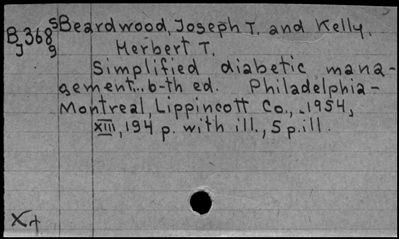 B 368 s Beardwood, Joseph T. and Kelly,
J 9 Herbert T.
Simplified diabetic mana-
gement... 6-th ed. Philadelphia-
Montreal, Lippincott Co., 1954,
XIII, 194 p. with ill., 5 p. ill.